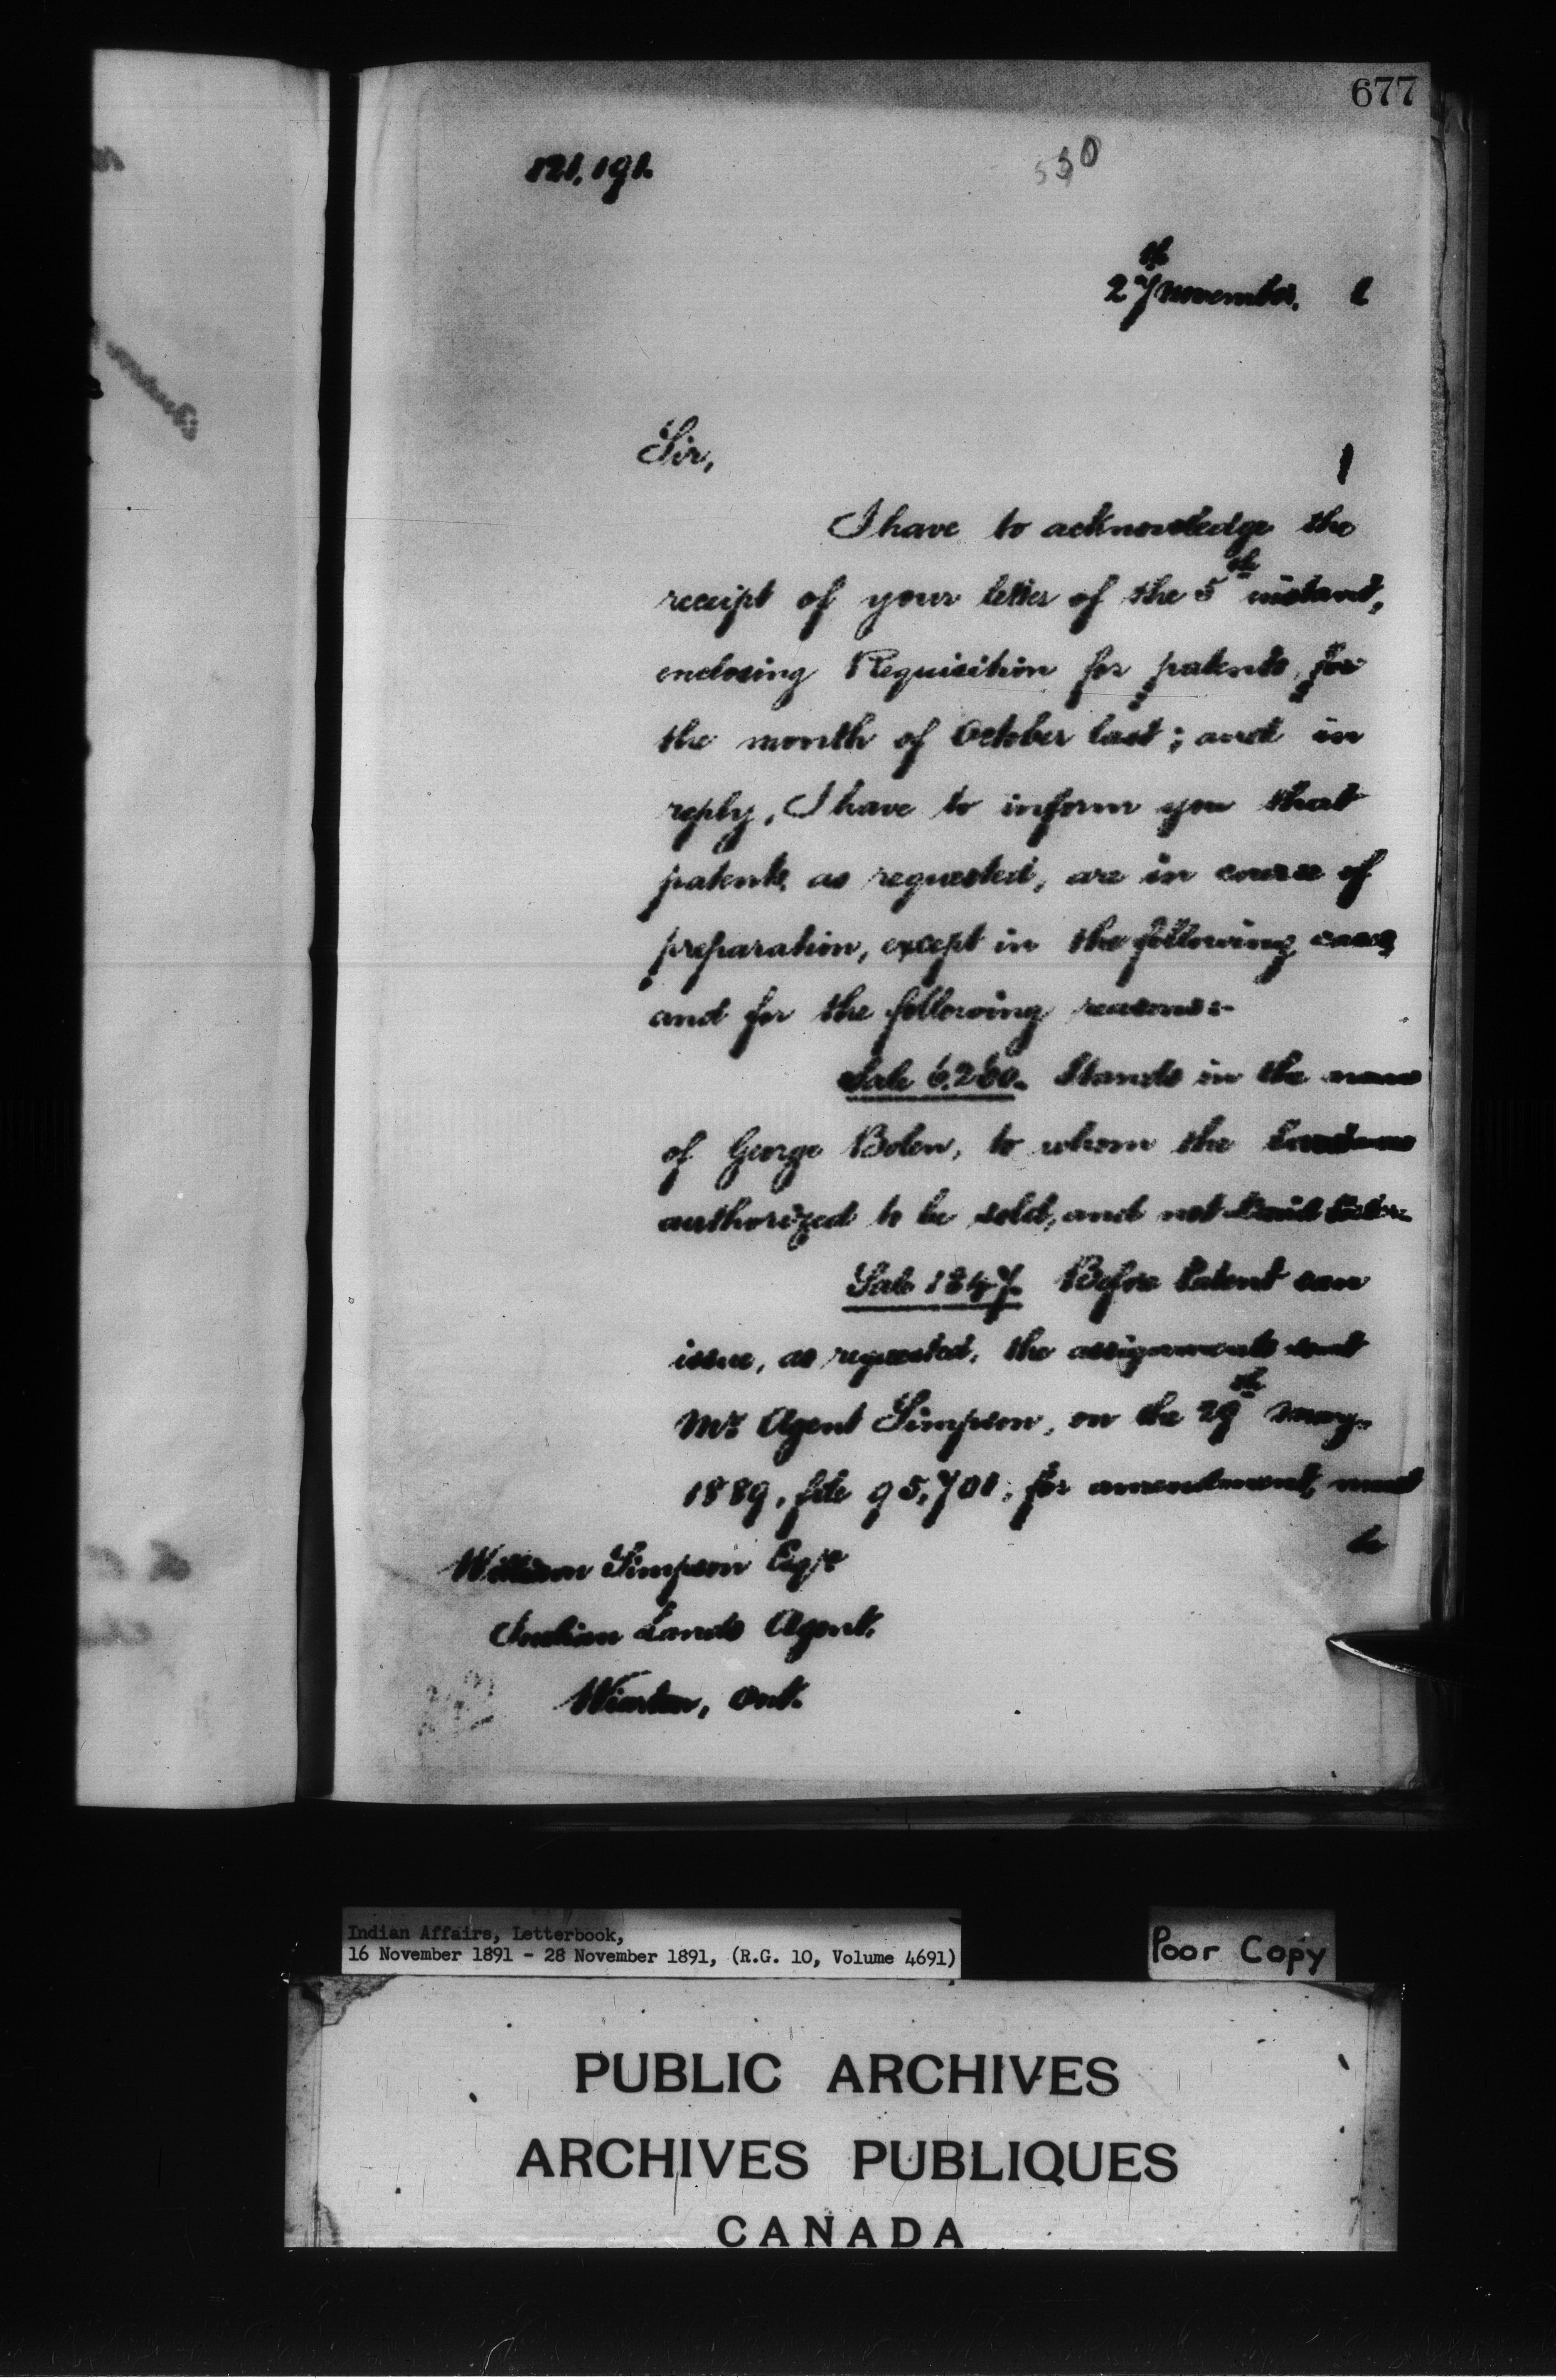 677
121.191.
530
27th November. 1
Sir,
I have to acknowledge the
receipt of your letter of the 5th instant,
enclosing Requisition for patents, for
the month of October last; and in
reply, I have to inform you that
patents, as requested, are in course of
preparation, except in the following cases,
and for the following reasons:-
Sale 6.260. Stands in the name
of George Bolen, to whom the
authorized to be sold, and not
Sale 1847. Before Patent can
issue, as requested, the assignments sent
Mr. Agent Simpson, on the 29th May.
1889, file 95,701, for amendment, must
be
William Simpson Esqre
Indian Lands Agent.
Wiarton, Ont.
Indian Affairs, Letterbook,
16 November 1891 - 28 November 1891, (R.G. 10, Volume 4691)
Poor Copy
PUBLIC ARCHIVES
ARCHIVES PUBLIQUES
CANADA